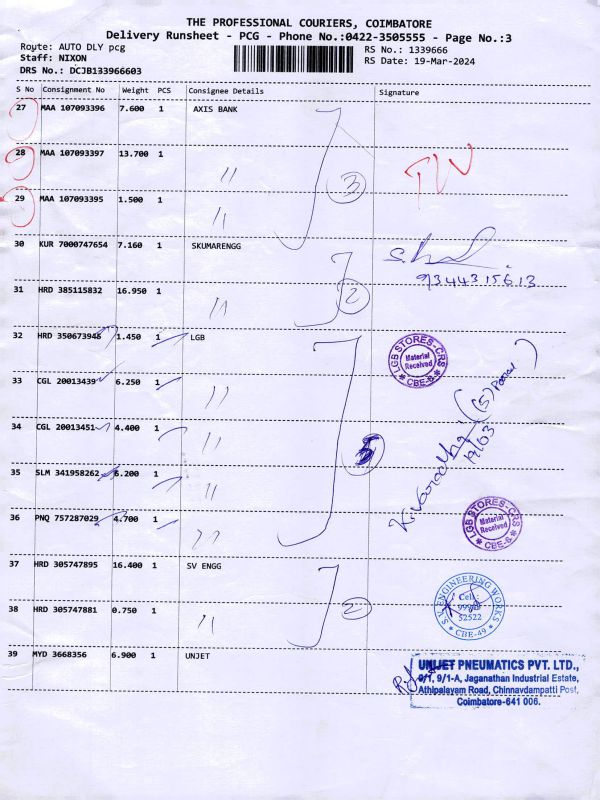 THE PROFESSIONAL COURIERS, COIMBATORE
Delivery Runsheet - PCG - Phone No.:0422-3505555 - Page No.:3
Route: AUTO DLY pcg RS No.: 1339666
Staff: NIXON RS Date: 19-Mar-2024
DRS No.: DCJB133966603
S No Consignment No Weight PCS Consignee Details Signature
27 MAA 107093396 7.600 1 AXIS BANK
28 MAA 107093397 13.700 1 〃 3
29 MAA 107093395 1.500 1 〃
30 KUR 7000747654 7.160 1 SKUMARENGG
9344315613
31 HRD 385115832 16.950 1 〃 2
32 HRD 350673946 1.450 1 LGB
LGB STORES-CRS
Material
Received
CBE-6
33 CGL 20013439 6.250 1 〃
34 CGL 20013451 4.400 1 〃 5
(5)
19/03
35 SLM 341958262 6.200 1 〃
36 PNQ 757287029 4.700 1 〃
LGB STORES-CRS
Material
Received
CBE-6
37 HRD 305747895 16.400 1 SV ENGG
38 HRD 305747881 0.750 1 〃 2
S.V. ENGINEERING WORKS
Cell:
52522
CBE-49
39 MYD 3668356 6.900 1 UNJET
UNIJET PNEUMATICS PVT. LTD.,
9/1, 9/1-A, Jaganathan Industrial Estate,
Athipalayam Road, Chinnavdampatti Post,
Coimbatore-641 006.